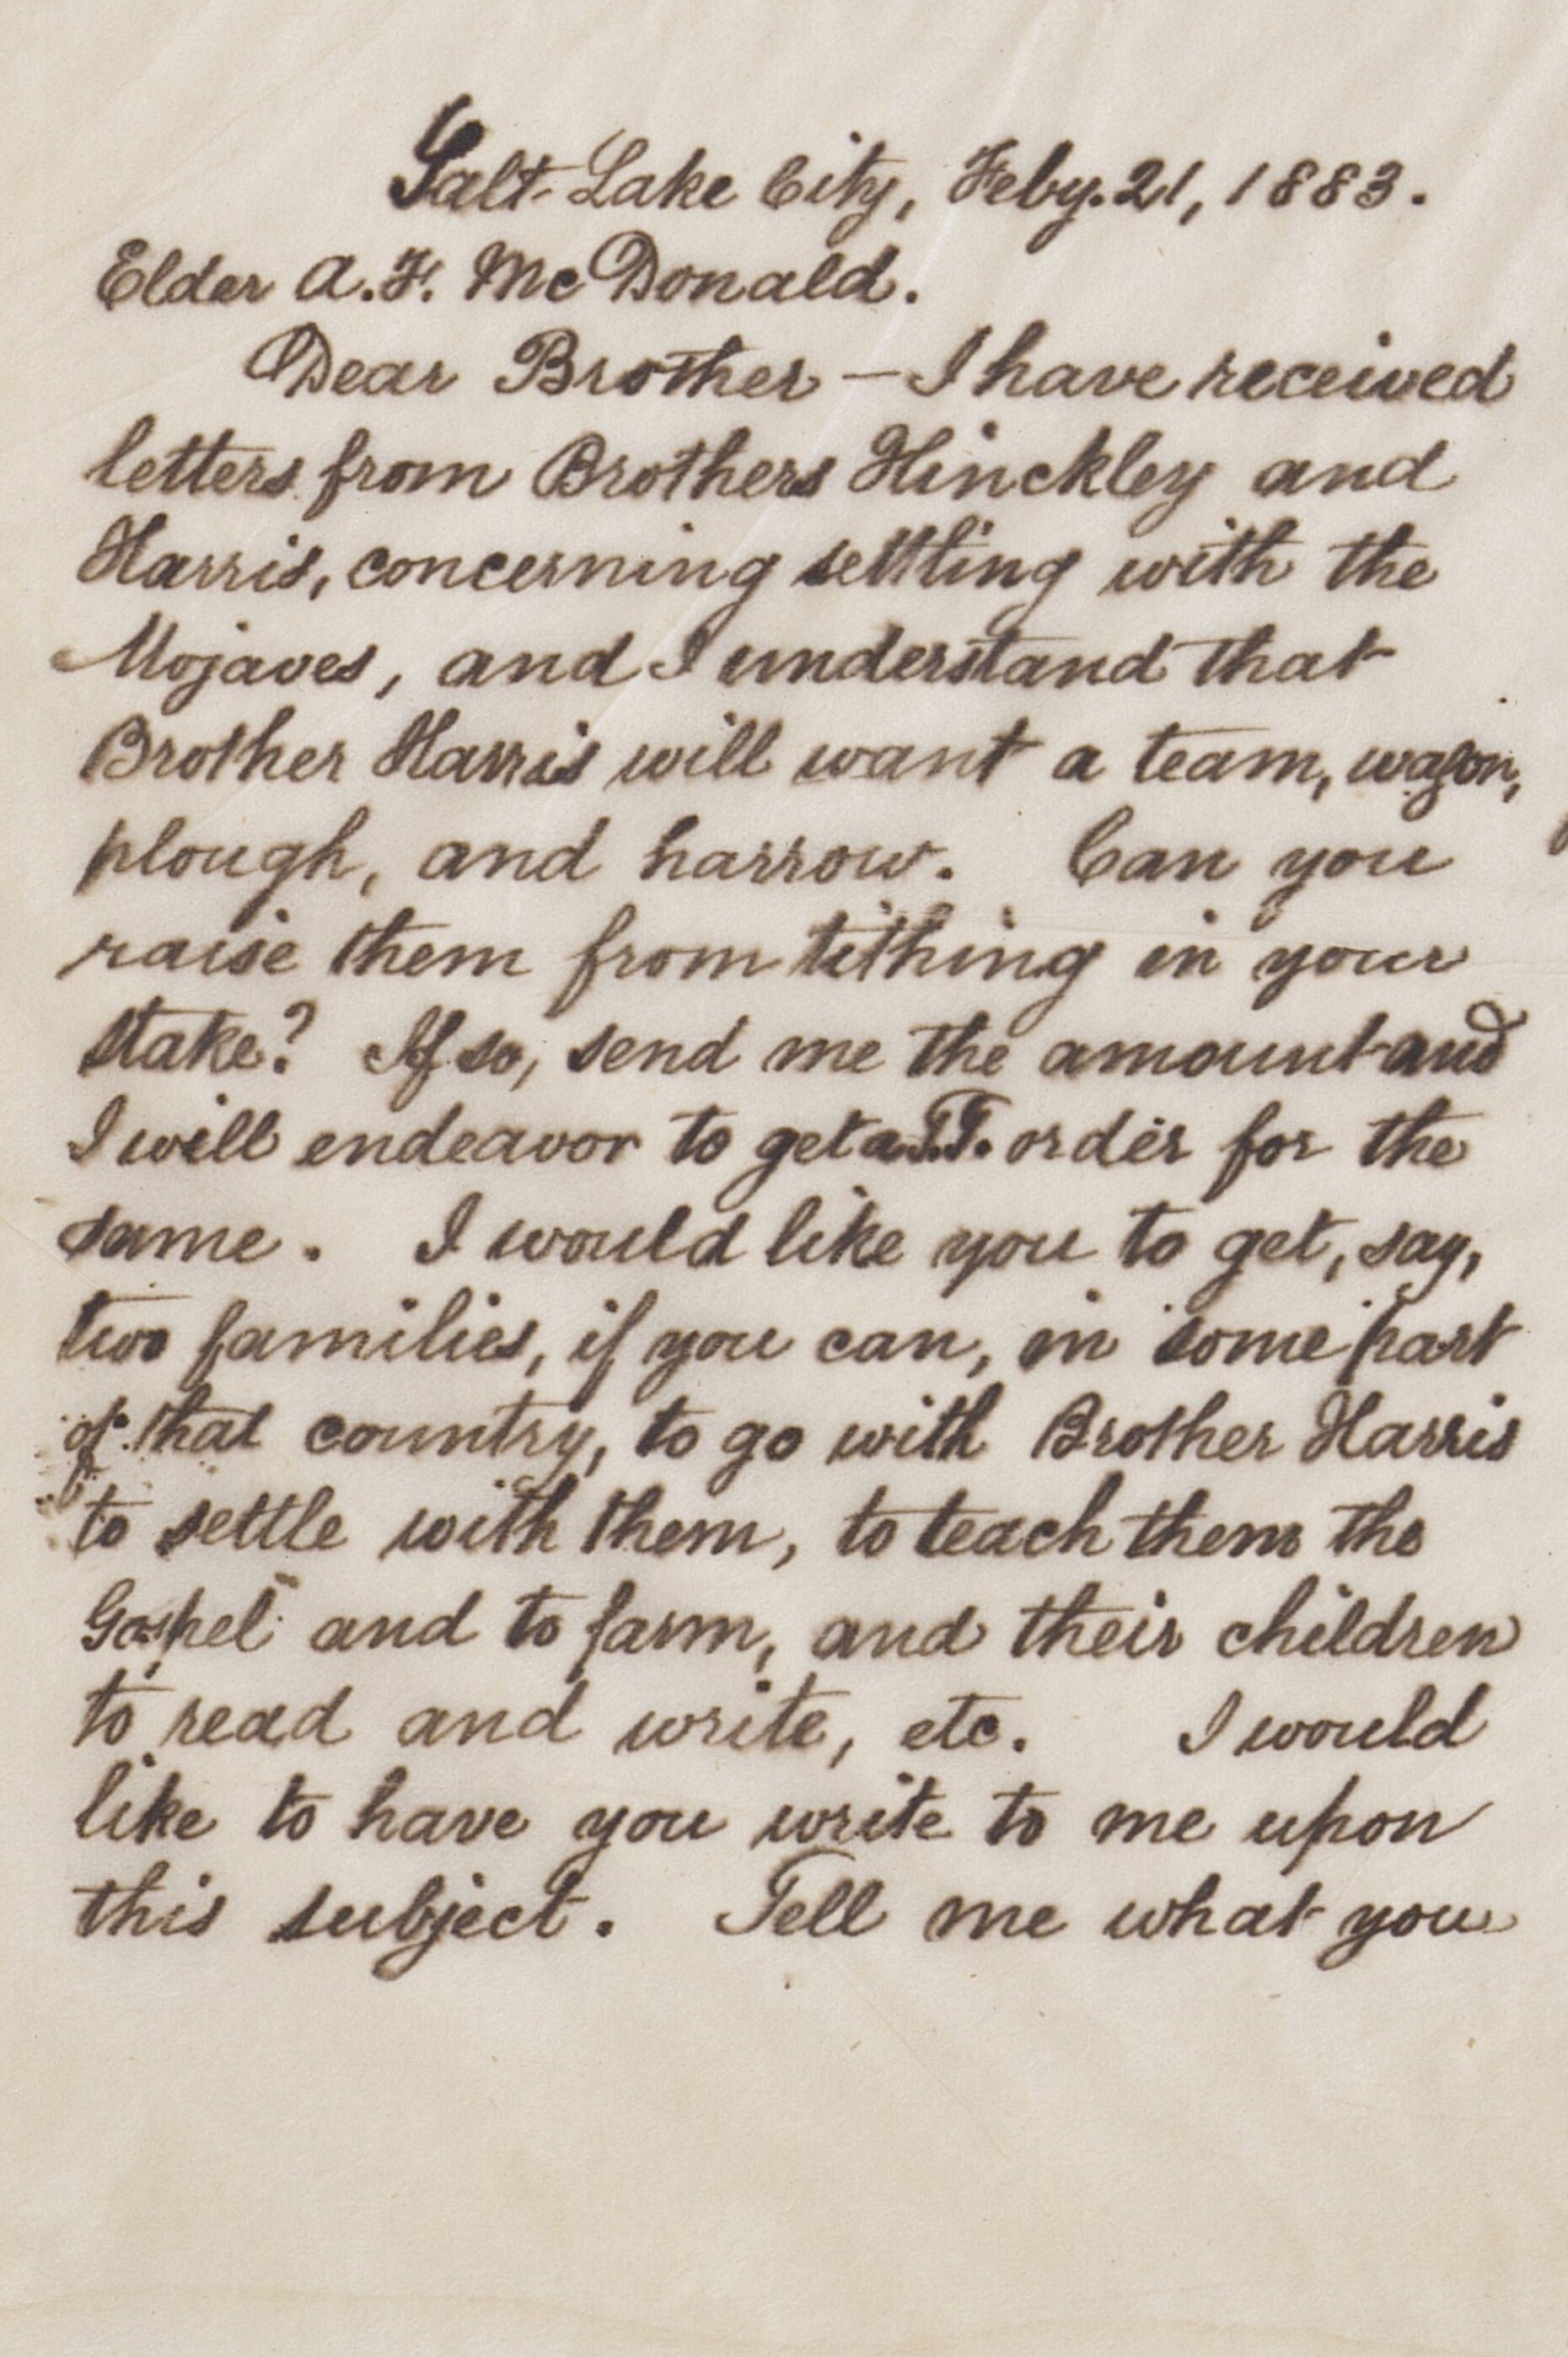 Salt Lake City, Feby. 21, 1883.
Elder A. F. McDonald.
Dear Brother — I have received
letters from Brothers Hinckley and
Harris, concerning settling with the
Mojaves, and I understand that
Brother Harris will want a team, wagon,
plough, and harrow. Can you
raise them from tithing in your
stake? If so, send me the amount and
I will endeavor to get a T.T. order for the
same. I would like you to get, say,
two families, if you can, in some part
of that country, to go with Brother Harris
to settle with them, to teach them the
Gospel and to farm, and their children
to read and write, etc. I would
like to have you write to me upon
this subject. Tell me what you